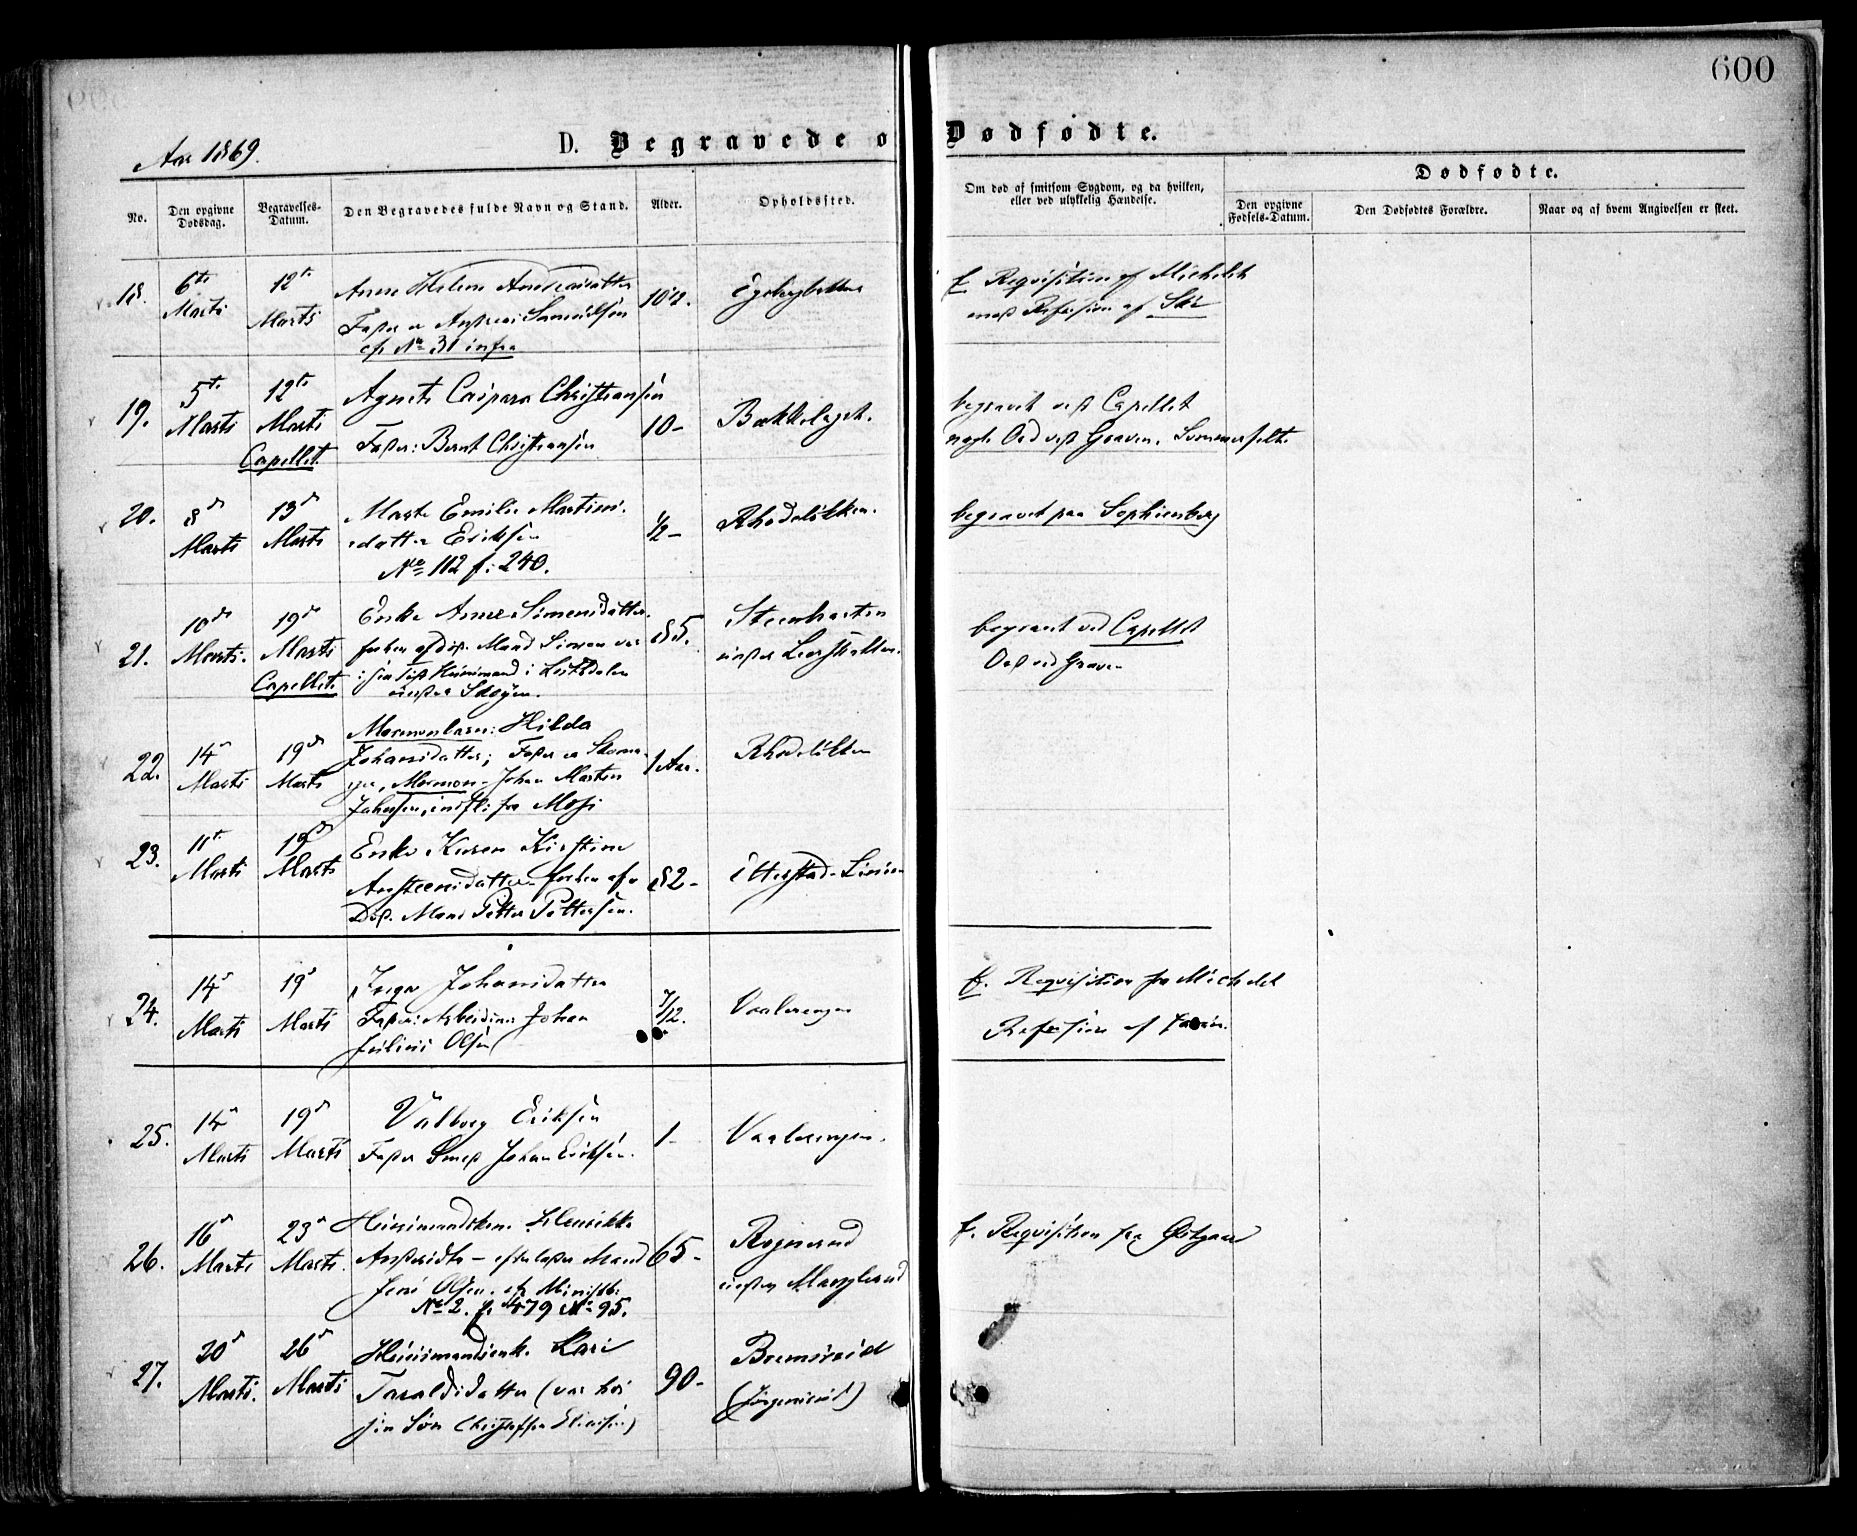 600
Aar 1869.
D. Begravede o
Dødfødte.
No.
Den opgivne Dødsdag.
Begravelses-Datum.
Den Begravedes fulde Navn og Stand.
Alder.
Opholdssted.
Om død af smitsom Sygdom, og da hvilken,
eller ved ulykkelig Hændelse.
Dødfødte.
Den opgivne Fødsels-Datum.
Den Dødfødtes Forældre.
Naar og af hvem Angivelsen er skeet.
18.
6te Marts
12te Marts
Anne Helene Andreasdatter
Fader er Andreas Samuelsen
cfr No 31 infra
f. Requisition af Michelet
med Refusion af Ski
19.
5te Marts
12te Marts
Capellet
Agnete Caspara Christiansen
Fader: Bernt Christiansen
10-
Bækkelaget.
begravet ved Capellet
nogle Ord ved Graven. Sommerfelt.
20.
8de Marts
13de Marts
Marte Emilie Martins-
datter Eriksen
No 112 f: 240.
1/2-
Rhodeløkken.
begravet paa Sophienberg
21.
10de Marts.
19de Marts
Capellet
Enke Anne Simensdatter.
forhen afdøde Mand Simen var
i sin Tid Huusmand i
under Skøyen.
85.
under
begravet ved Capellet
Ord ved Graven
22.
14de Marts
19de Marts
Mormonbarn: Hilda
Johansdatter; Fader er Skoma-
ger, Mormon - Johan Martin
Johansen, indfl: fra Moss
1 Aar.
Rhodeløkken
23.
11te Marts
19de Marts
Enke Karen Kirstine
Amsteensdatter forhen af
Død. Mand Petter Pettersen.
82-
24.
14de Marts
19de Marts
Inga Johansdatter
Fader: Arbeider Johan
Julius Olsen
7/12.
Vaalerengen
f. Requisition fra Michelet
Refusion af
25.
14de Marts
19de Marts
Valborg Eriksen
Fader Smed Johan Eriksen.
1-
Vaalerengen.
26.
16de Marts
23de Marts.
Huusmandskone Henrikke
Andersdtr - efterlader Mand
Jens Olsen. cfr Ministb:
No 2. f. 479 No 95.
65-
under Manglerud
f. Requisition fra
27.
20de Marts.
26de Marts
Huusmandsenke Kari
Taraldsdatter (var hos
sin Søn Christoffer Eliassen)
90-